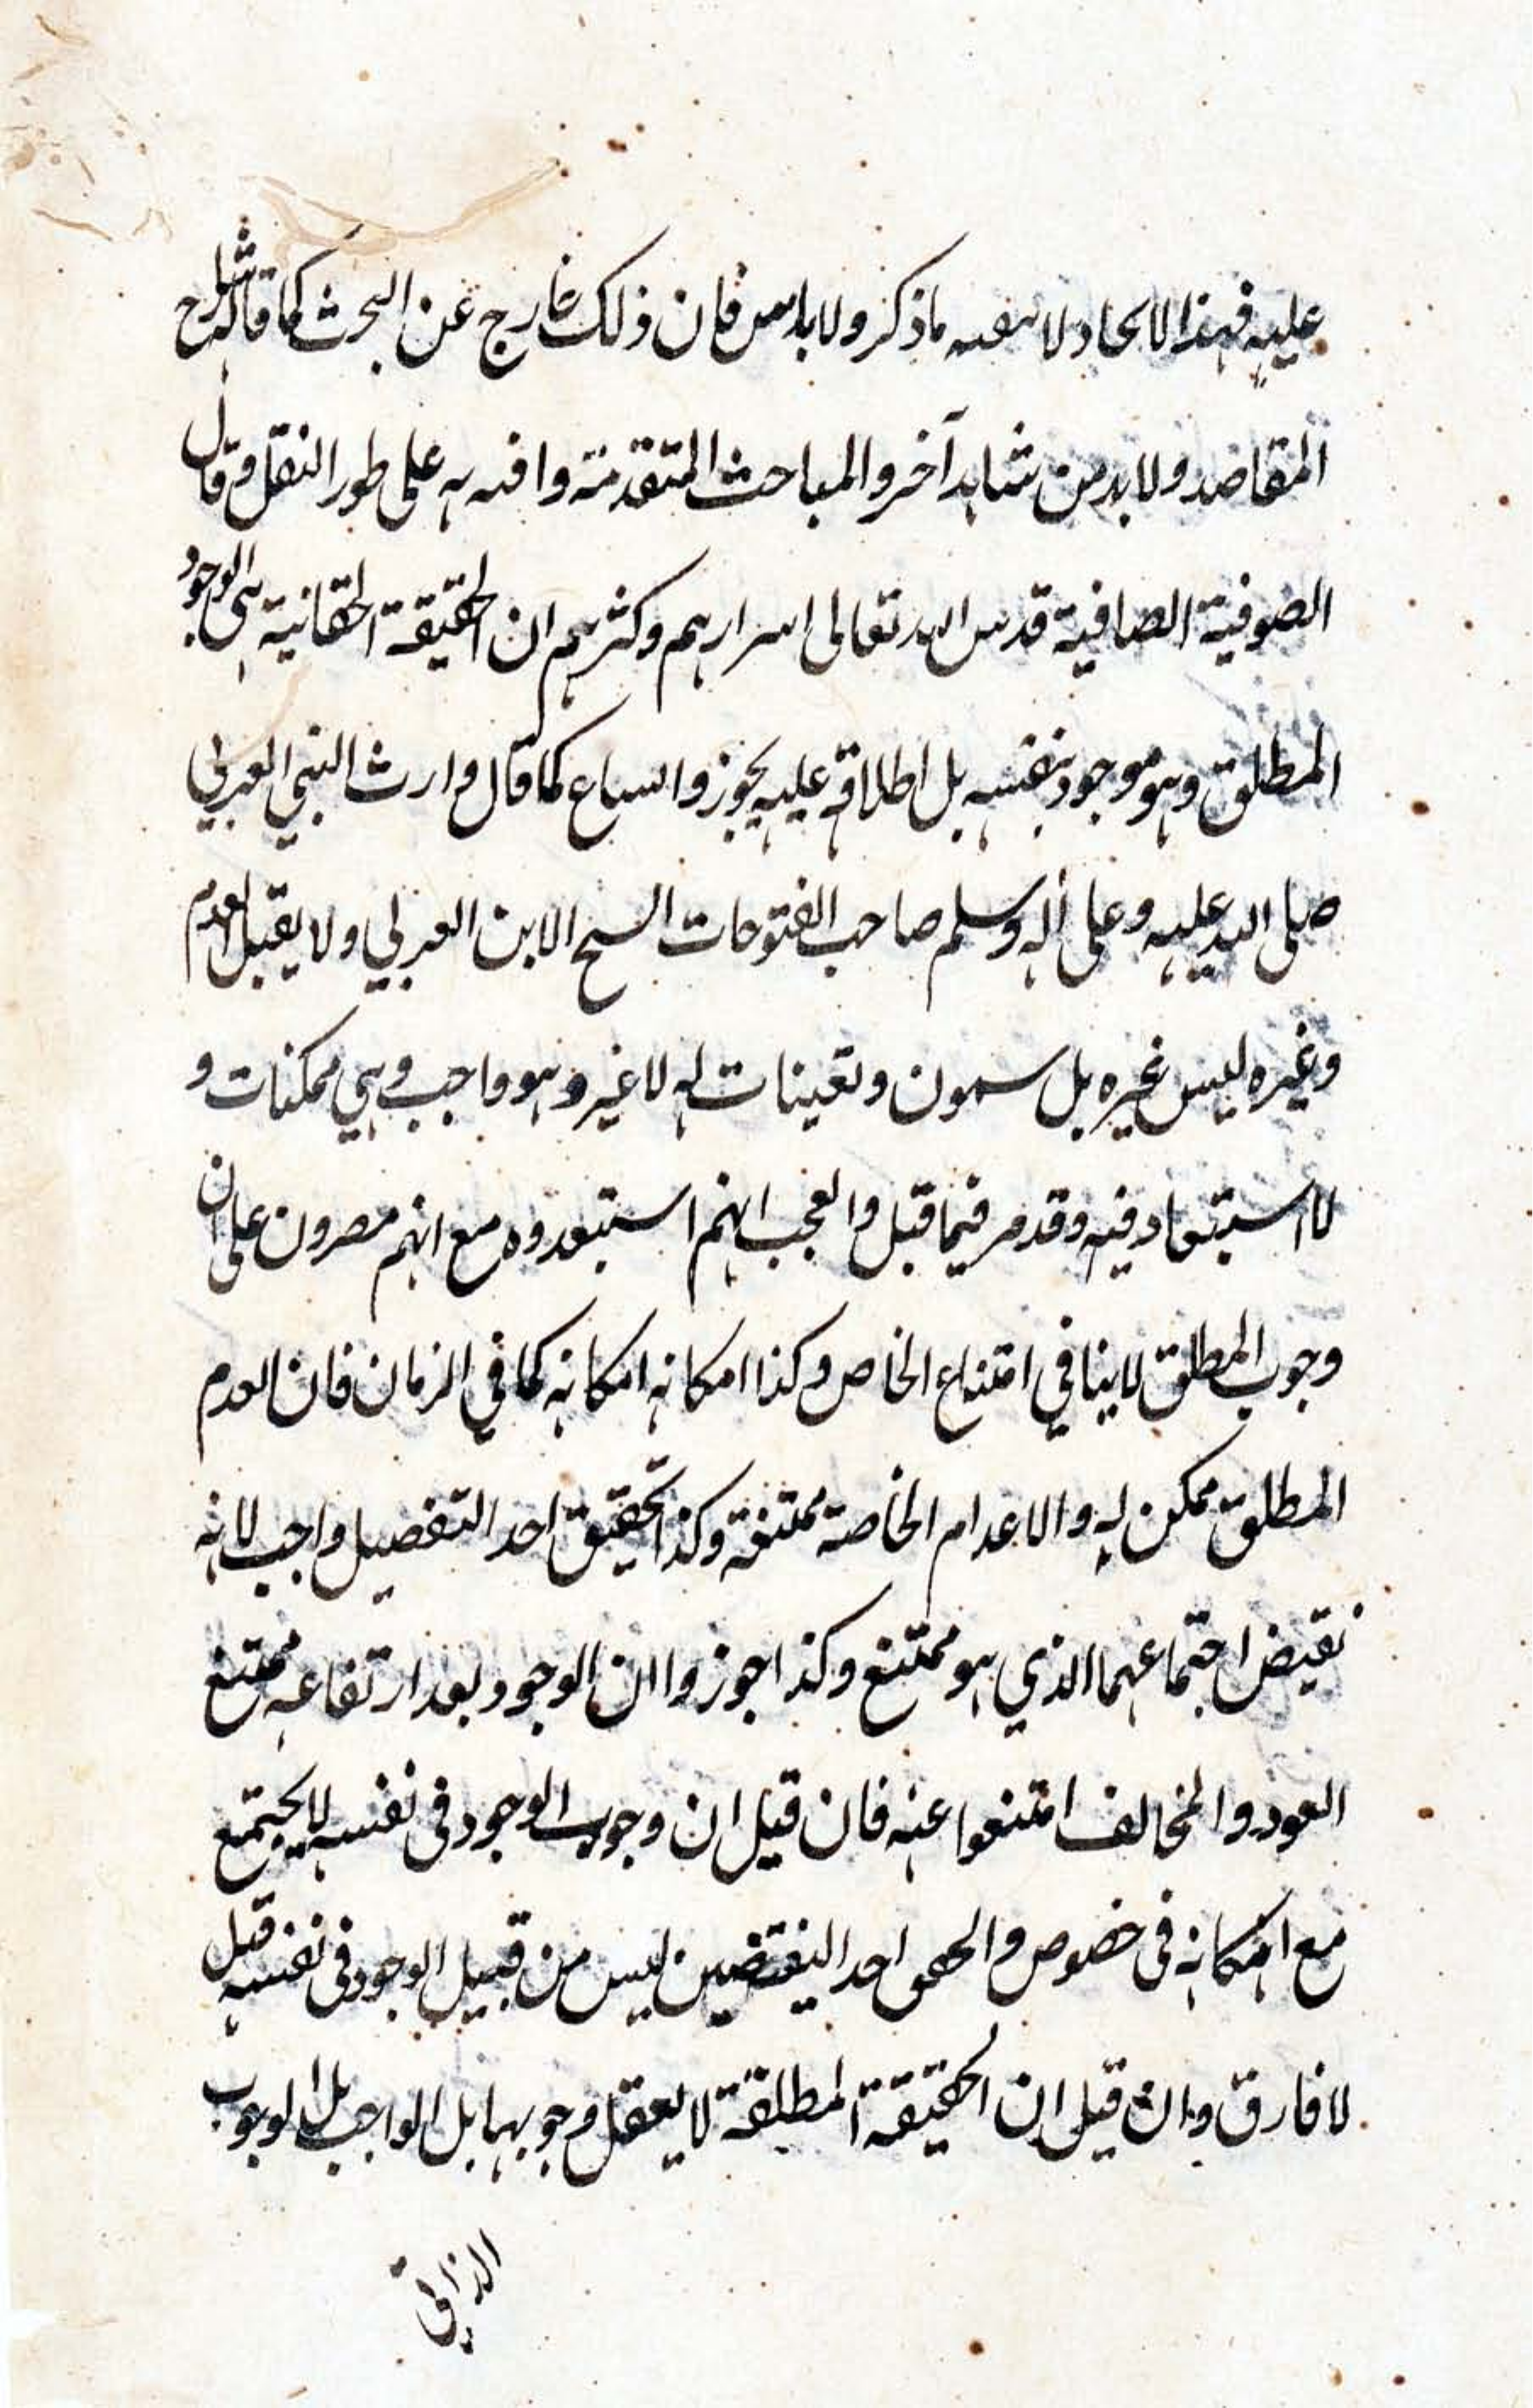 عليه فهذا الاتحاد لا ما ذكر ولا باس فان ذلك خارج عن البحث كما قاله شارح
المقاصد ولابد من شاهد آخر والمباحث المتقدمة وافيه به على طور النقل وقال
الصوفية الصافية قدس الله تعالى اسرارهم وكثرهم ان الحقيقة الحقانية هي الوجود
المطلق وهو موجود بنفسه بل اطلاقه عليه يجوز والسماع كما قال وارث النبي العربي
صلى الله عليه وعلى آله وسلم صاحب الفتوحات الشيخ الابن العربي ولا يقبل العدم
وغيره ليس غيره بل شيون وتعينات له لا غير وهو واجب وهي ممكنات و
لا استبعاد فيه وقد مر فيما قبل والعجب انهم استبعدوه مع انهم مصرون على ان
وجوب المطلق لا ينافي امتناع الخاص وكذا امكانه امكانه كما في الزمان فان العدم
المطلق ممكن له والاعدام الخاصة ممتنعة وكذا تحقيق احد التفصيل واجب لانه
نقيض اجتماعهما الذي هو ممتنع وكذا جوزوا ان الوجود بعد ارتفاعه ممتنع
العود والمخالف امتنعوا عنه فان قيل ان وجوب الوجود في نفسه لا يجتمع
مع امكانه في خصوص واحد النقيضين ليس من قبيل الوجود في نفسه قيل
لا فارق وان قيل ان الحقيقة المطلقة لا يعقل وجوبها بل الواجب بل الوجوب
الذاتي